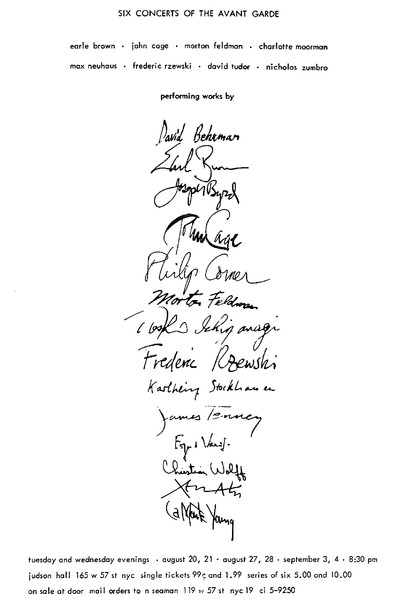 SIX CONCERTS OF THE AVANT GARDE
earle brown · john cage · morton feldman · charlotte moorman
max neuhaus · frederic rzewski · david tudor · nicholas zumbro
performing works by
David Behrman
Earl Brown
Joseph Byrd
John Cage
Philip Corner
Morton Feldman
Toshi Ichiyanagi
Frederic Rzewski
Karlheinz Stockhausen
James Tenney
Christian Wolff
La Monte Young
tuesday and wednesday evenings · august 20, 21 · august 27, 28 · september 3, 4 · 8:30 pm
judson hall 165 w 57 st nyc single tickets 99¢ and 1.99 series of six 5.00 and 10.00
on sale at door mail orders to n seaman 119 w 57 st nyc 19 ci 5-9250